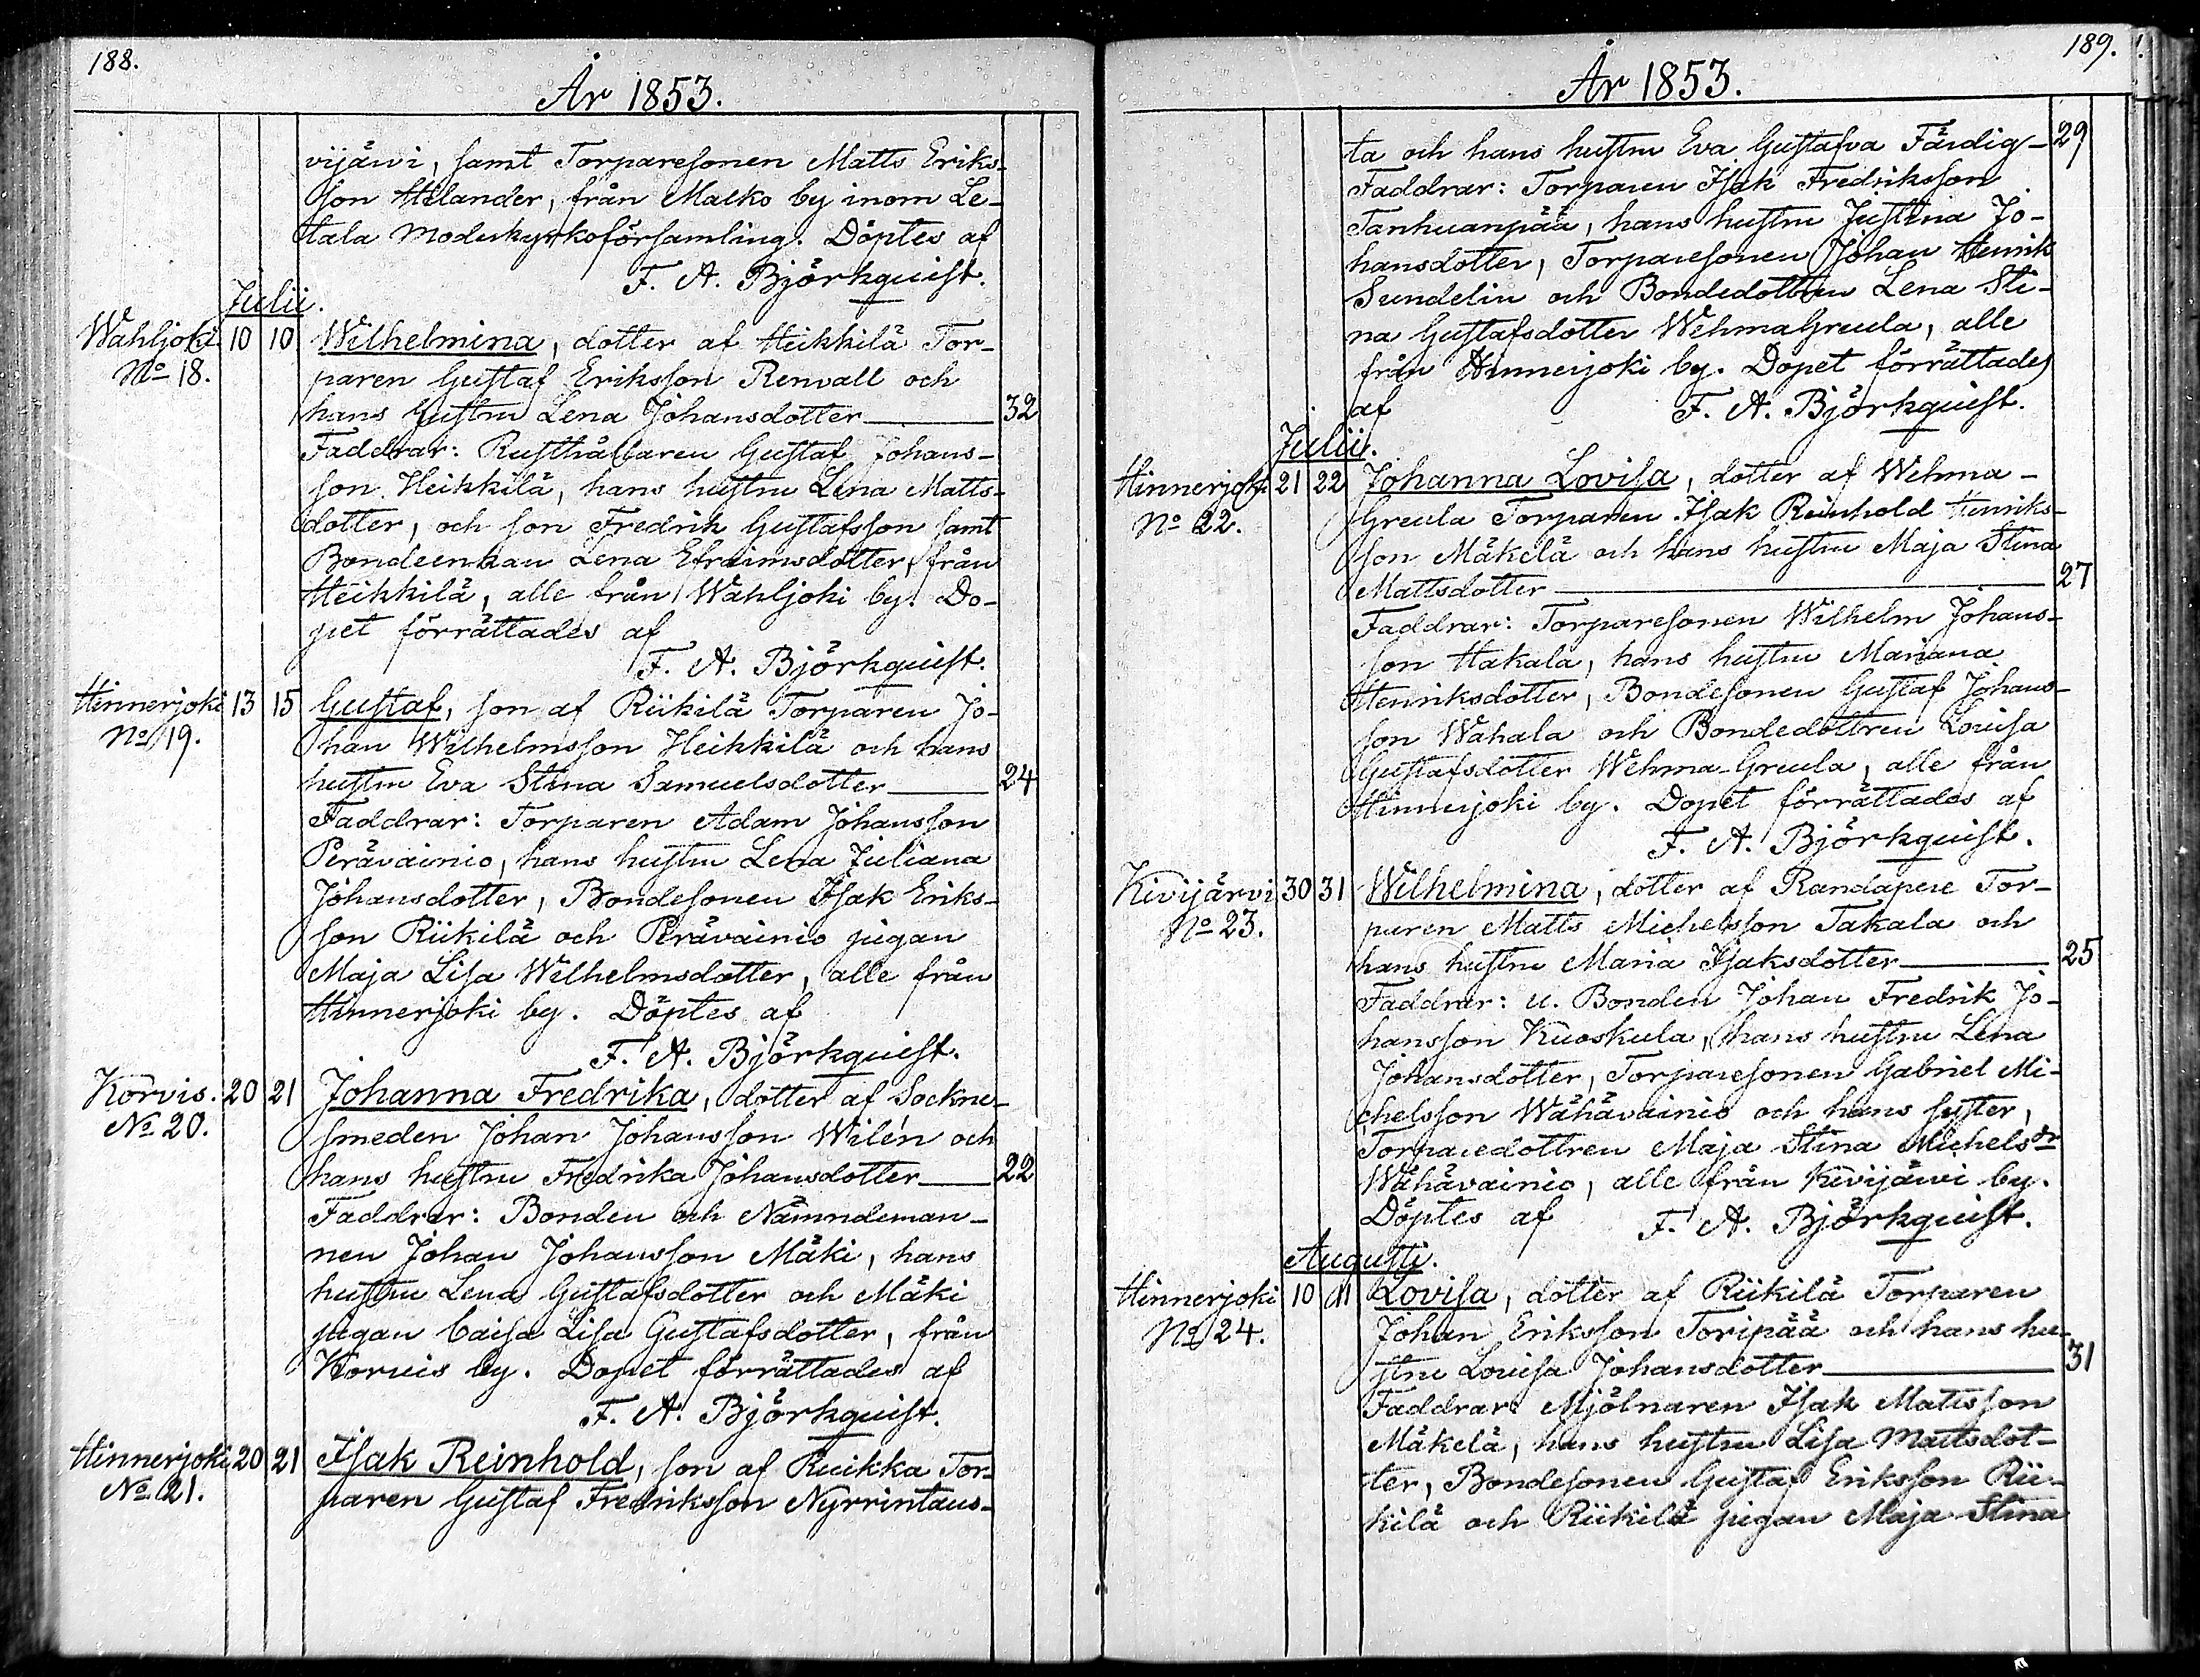 188.
År 1853.
vijärvi, samt Torparesonen Matts Eriks-
son Helander, från Malko by inom Le-
tala Moderkyrkoförsamling. Döptes af
F. A. Björkquist.
Julii.
Wahljoki 10 10 Wilhelmina, dotter af Heikkilä Tor-
No 18. paren Gustaf Eriksson Renvall och
hans hustru Lena Johansdotter 32
Faddrar: Rusthållaren Gustaf Johans-
son Heikkilä, hans hustru Lena Matts-
dotter, och son Fredrik Gustafsson samt
Bondeenkan Lena Efraimsdotter, från
Heikkilä, alle från Wahljoki by. Do-
pet förrättades af
F. A. Björkquist.
Hinnerjoki 13 15 Gustaf, son af Riikilä Torparen Jo-
No 19. han Wilhelmsson Heikkilä och hans
hustru Eva Stina Samuelsdotter 24
Faddrar: Torparen Adam Johansson
Perävainio, hans hustru Lena Juliana
Johansdotter, Bondesonen Isak Eriks-
son Riikilä och Perävainio pigan
Maja Lisa Wilhelmsdotter, alle från
Hinnerjoki by. Döptes af
F. A. Björkquist.
Korvis. 20 21 Johanna Fredrika, dotter af Sockne-
No 20. smeden Johan Johansson Wilén och
hans hustru Fredrika Johansdotter 22
Faddrar: Bonden och Nämndeman-
nen Johan Johansson Mäki, hans
hustru Lena Gustafsdotter och Mäki
pigan Caisa Lisa Gustafsdotter, från
Korvis by. Dopet förrättades af
F. A. Björkquist.
Hinnerjoki 20 21 Isak Reinhold, son af Ruikka Tor-
No 21. paren Gustaf Fredriksson Nyrrintaus-
189.
År 1853.
ta och hans hustru Eva Gustafva Färdig- 29
Faddrar: Torparen Isak Fredriksson
Tanhuanpää, hans hustru Justina Jo-
hansdotter, Torparesonen Johan Henrik
Sundelin och Bondedottren Lena Sti-
na Gustafsdotter WehmaGreula, alle
från Hinnerjoki by. Dopet förrättades
af F. A. Björkquist.
Julii.
Hinnerjoki 21 22 Johanna Lovisa, dotter af Wehma-
No 22. Greula Torparen Isak Reinhold Henriks-
son Mäkelä och hans hustru Maja Stina
Mattsdotter 27
Faddrar: Torparesonen Wilhelm Johans-
son Hakala, hans hustru Mariana
Henriksdotter, Bondesonen Gustaf Johans-
son Wahala och Bondedottren Lovisa
Gustafsdotter Wehma-Greula, alle från
Hinnerjoki by. Dopet förrättades af
F. A. Björkquist.
Kivijärvi 30 31 Wilhelmina, dotter af Randapere Tor-
No 23. paren Matts Michelsson Takala och
hans hustru Maria Isaksdotter 25
Faddrar: u. Bonden Johan Fredrik Jo-
hansson Kuoskula, hans hustru Lena
Johansdotter, Torparesonen Gabriel Mi-
chelsson Wähävainio och hans syster,
Torparedottren Maja Stina Michelsdr
Wähävainio, alle från Kivijärvi by.
Döptes af F. A. Björkquist.
Augusti.
Hinnerjoki 10 11 Lovisa, dotter af Riikilä Torparen
No 24. Johan Eriksson Toripää och hans hu-
stru Lovisa Johansdotter 31
Faddrar: Mjölnaren Isak Matsson
Mäkelä, hans hustru Lisa Mattsdot-
ter, Bondesonen Gustaf Eriksson Rii-
kilä och Riikilä pigan Maja Stina